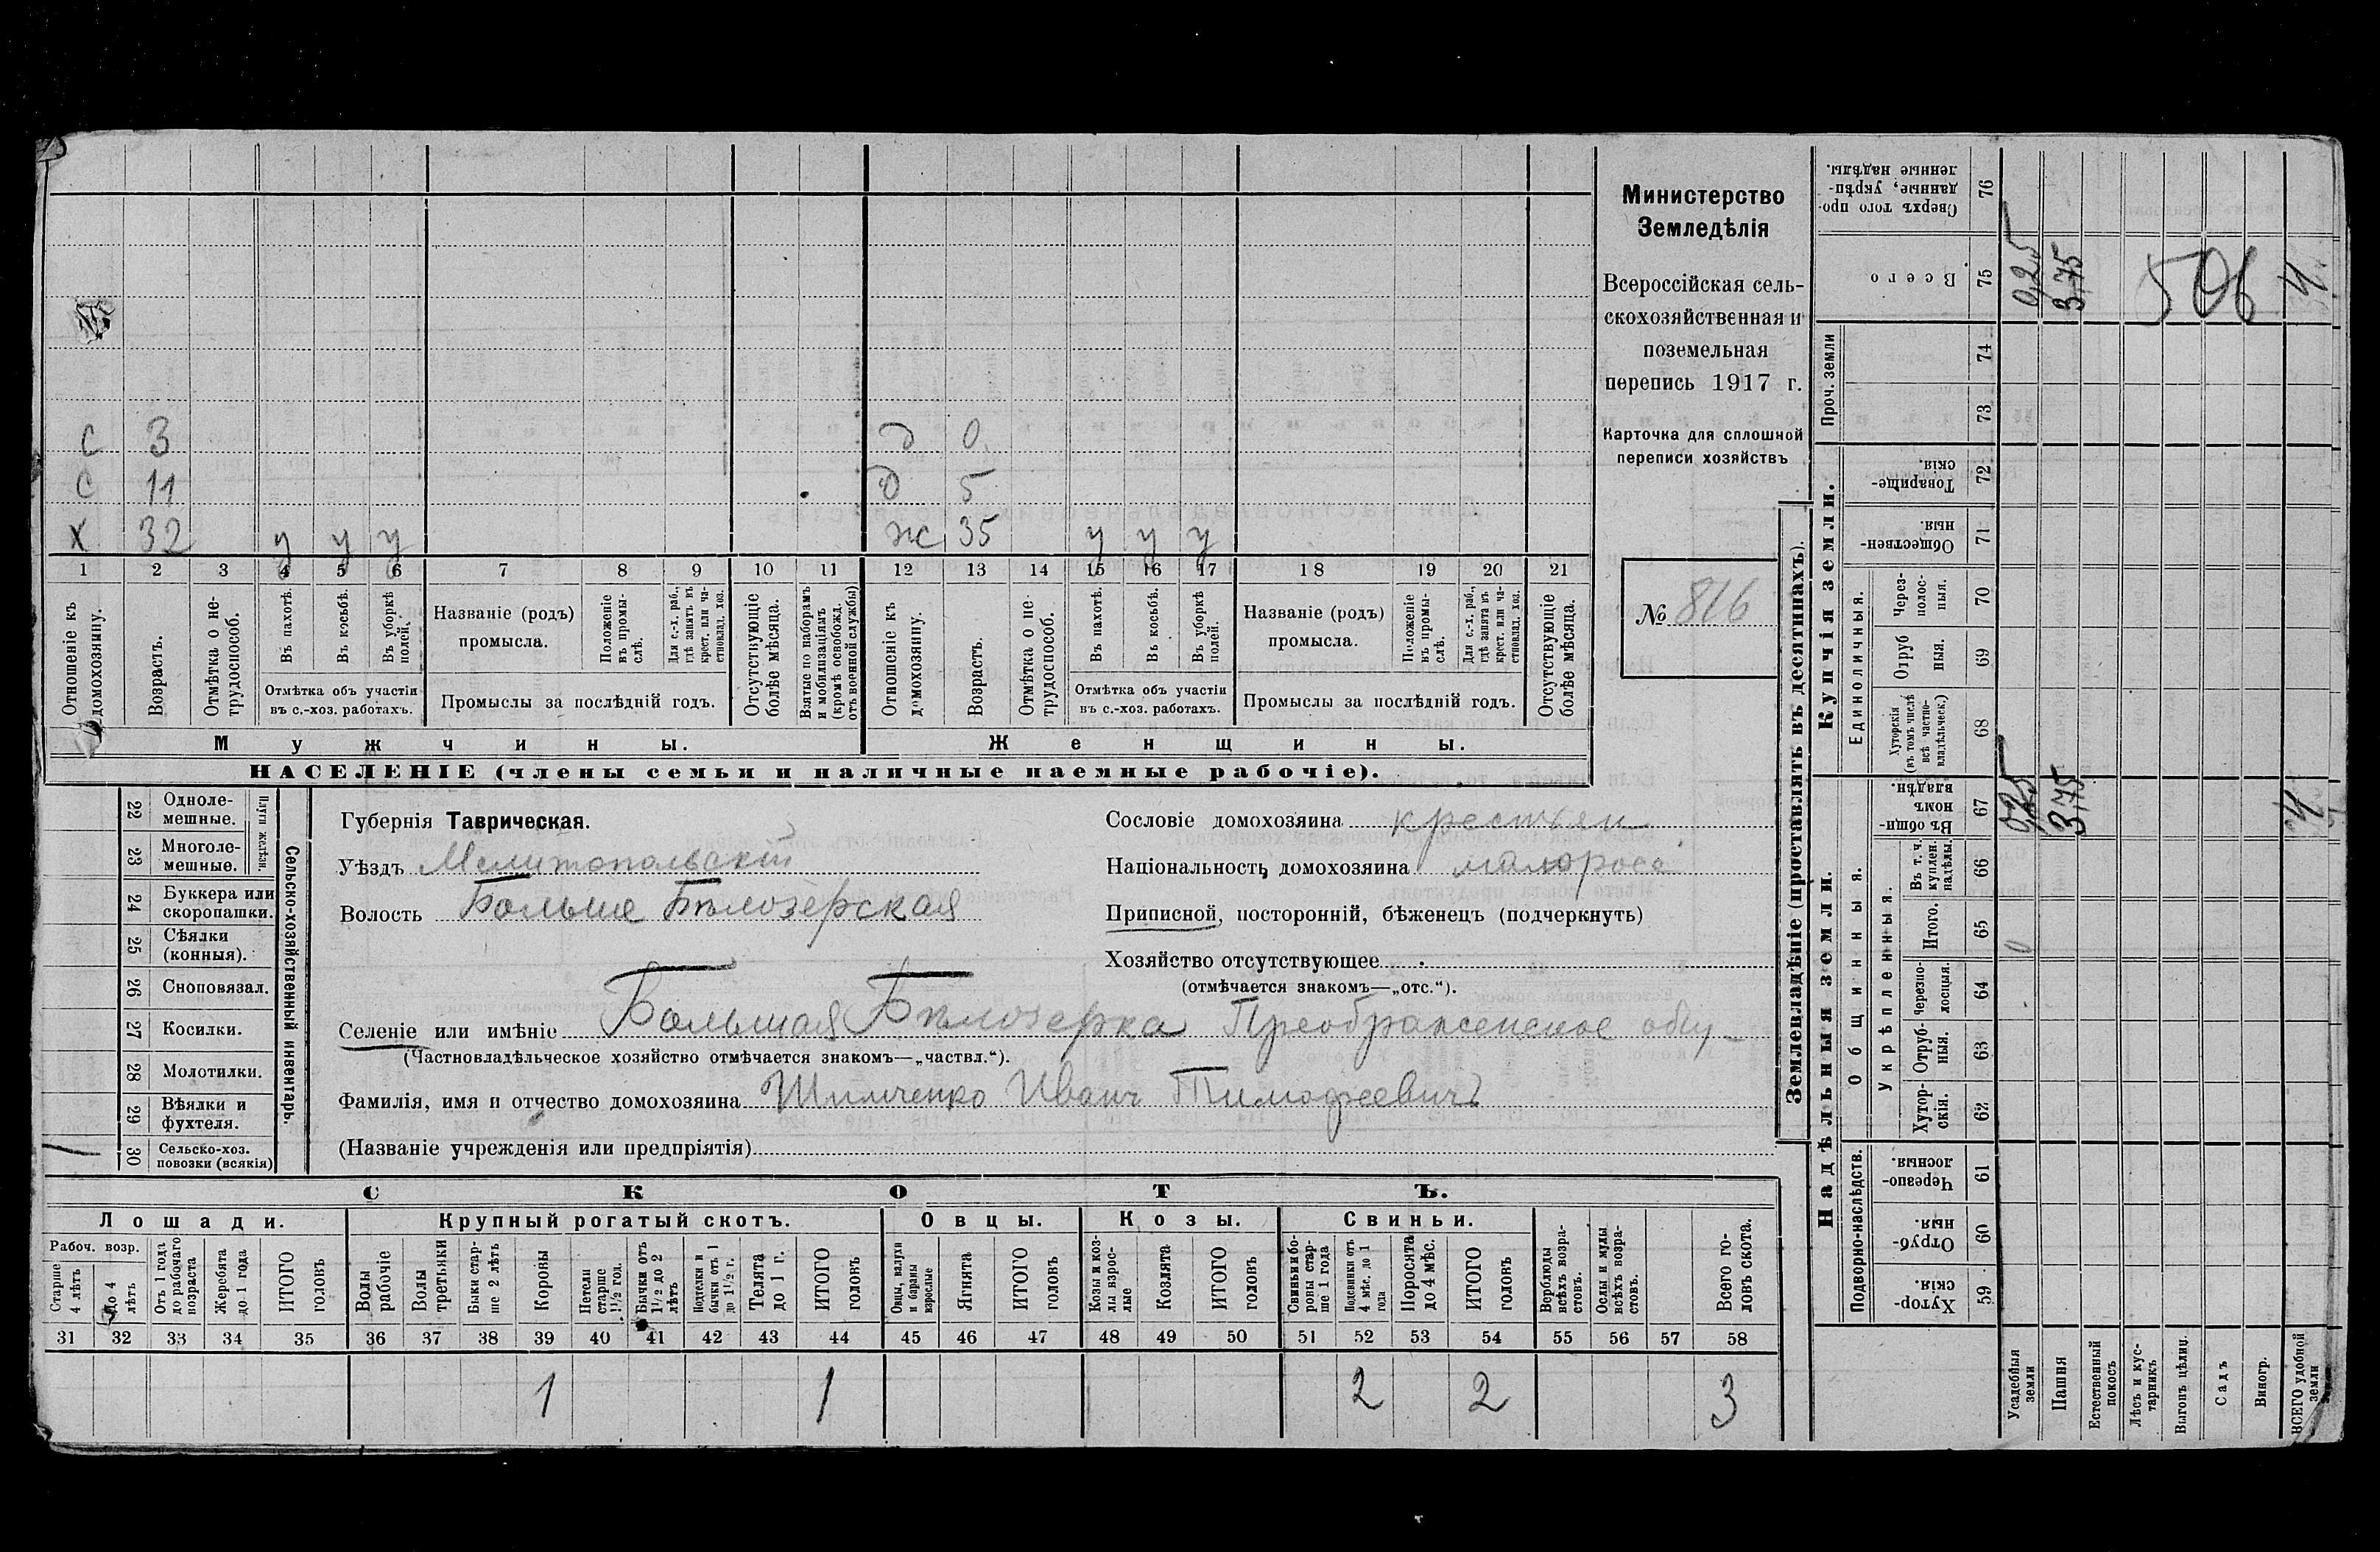 Министерство
Земледѣлія
Всероссійская сель-
скохозяйственная и
поземельная
перепись 1917 г.
Карточка для сплошной
переписи хозяйствъ
№ 816
с 3 д 0
с 11 д 5
х 32 у у у ж 35 у у у
1 2 3 4 5 6 7 8 9 10 11 12 13 14 15 16 17 18 19 20 21
Отношеніе къ домохозяину.
Возрастъ.
Отмѣтка о не-трудоспособ.
Въ пахотѣ.
Въ косьбѣ.
Въ уборкѣ полей.
Отмѣтка объ участіи
въ с.-хоз. работахъ.
Названіе (родъ)
промысла.
Положеніе въ промы-слѣ.
Для с.-х. раб., гдѣ занятъ въ крест. или ча-стновлад. хоз.
Промыслы за послѣдній годъ.
Отсутствующіе болѣе мѣсяца.
Взятые по наборамъ и мобилизаціямъ (кромѣ освобожд. отъ военной службы)
Отношеніе къ домохозяину.
Возрастъ.
Отмѣтка о не трудоспособ.
Въ пахотѣ.
Въ косьбѣ.
Въ уборкѣ полей.
Отмѣтка объ участіи
въ с.-хоз. работахъ.
Названіе (родъ)
промысла.
Положеніе въ промы-слѣ.
Для с.-х. раб., гдѣ занята въ крест. или ча-стновлад. хоз.
Промыслы за послѣдній годъ.
Отсутствующіе болѣе мѣсяца.
Мужчины. Женщины.
НАСЕЛЕНІЕ (члены семьи и наличные наемные рабочіе).
Сельско-хозяйственный инвентарь.
Плуги желѣзн.
22 Одноле-мешные.
23 Многоле-мешные.
24 Буккера или скоропашки.
25 Сѣялки (конныя).
26 Сноповязал.
27 Косилки.
28 Молотилки.
29 Вѣялки и фухтеля.
30 Сельско-хоз. повозки (всякія)
Губернія Таврическая.
Уѣздъ Мелитопольскій
Волость Больше Бѣлозерская
Сословіе домохозяина крестьян
Національность домохозяина малоросс
Приписной, посторонній, бѣженецъ (подчеркнуть)
Хозяйство отсутствующее
(отмѣчается знакомъ—„отс.“).
Селеніе или имѣніе Большая Бѣлозерка Преображенское общ
(Частновладѣльческое хозяйство отмѣчается знакомъ—„частвл.“).
Фамилія, имя и отчество домохозяина Шимченко Иванъ Тимофеевичъ
(Названіе учрежденія или предпріятія)
СКОТЪ.
Лошади. Крупный рогатый скотъ. Овцы. Козы. Свиньи.
Рабоч. возр.
Старше 4 лѣтъ
до 4 лѣтъ
Отъ 1 года до рабочаго возраста
Жеребята до 1 года
ИТОГО головъ
Волы рабочіе
Волы третьяки
Быки стар-ше 2 лѣтъ
Коровы
Нетели старше 1½ год.
Бычки отъ 1½ до 2 лѣтъ
Подтелки и бычки отъ 1 до 1½ г.
Телята до 1 г.
ИТОГО головъ
Овцы, валухи и бараны взрослые
Ягнята
ИТОГО головъ
Козы и коз-лы взрос-лые
Козлята
ИТОГО головъ
Свиньи и бо-ровы стар-ше 1 года
Подсвинки отъ 4 мѣс. до 1 года
Поросята до 4 мѣс.
ИТОГО головъ
Верблюды всѣхъ возра-стовъ.
Ослы и мулы всѣхъ возра-стовъ.
Всего го-ловъ скота.
31 32 33 34 35 36 37 38 39 40 41 42 43 44 45 46 47 48 49 50 51 52 53 54 55 56 57 58
1 1 2 2 3
Землевладѣніе (проставлять въ десятинахъ).
Надѣльныя земли. Купчія земли. Проч. земли
Подворно-наслѣдств.
Общинныя.
Укрѣпленныя.
Единоличныя.
Хутор-скія. 59
Отруб-ныя 60
Черезпо-лосныя. 61
Хутор-скія. 62
Отруб-ныя. 63
черезпо-лосныя. 64
Итого. 65
Въ т. ч. куплен. надѣлы. 66
Въ общи-номъ владѣн. 67
Хуторскія (въ томъ числѣ всѣ частно-владѣльческ.) 68
Отруб ныя. 69
Через-полос-ныя. 70
Обществен-ныя. 71
Товарище-скія. 72
73
74
Всего 75
Сверхъ того про-данные, укрѣп-ленные надѣлы. 76
Усадебныя земли 0,25 0,25
Пашня 3,75 3,75
Естественный покосъ
Лѣсъ и кус-тарникъ
Выгонъ цѣлин.
Садъ
Виногр.
ВСЕГО удобной земли 4 4
506